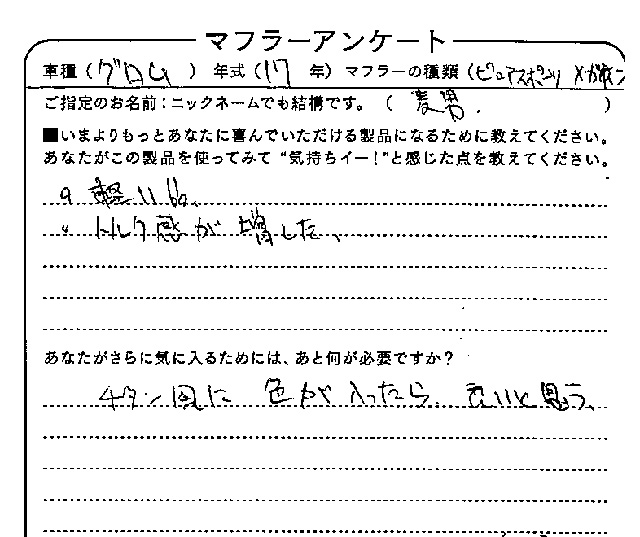 マフラーアンケート
車種（グロム）年式（17年）マフラーの種類（ピュアスポーツ
ご指定のお名前：ニックネームでも結構です。（麦男.）
■いまよりもっとあなたに喜んでいただける製品になるために教えてください。
あなたがこの製品を使ってみて“気持ちイー！”と感じた点を教えてください。
軽い
トルク感が増した、
あなたがさらに気に入るためには、あと何が必要ですか？
チタン風に 色が入ったら、良いと思う、